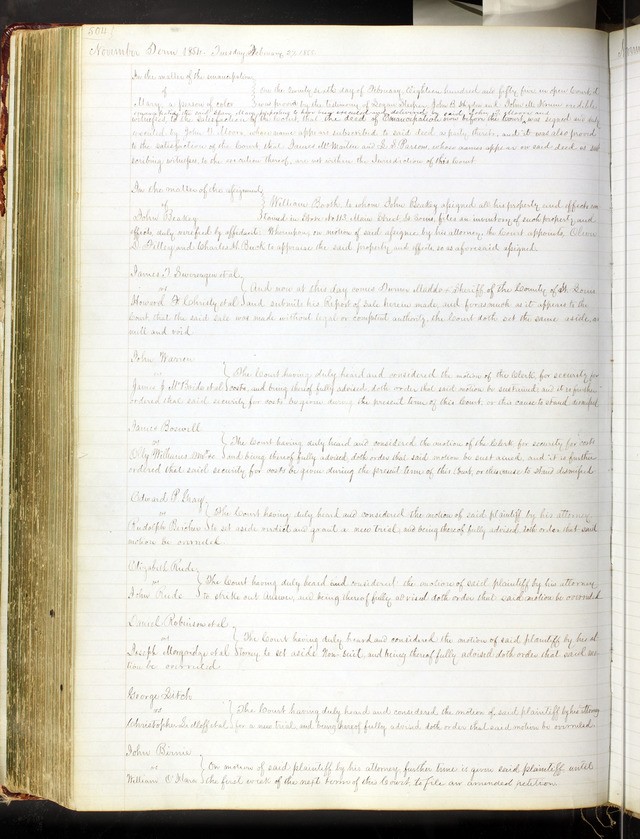 504
November Term 1854. Tuesday, February 27 1855.
In the matter of the emancipation
of
Mary, a person of color
On the twenty sixth day of February, Eighteen hundred and fifty five in open Court it
was proved by the testimony of Logan Hunton, John B. and John M. credible
witnesses to the satisfaction of the Court that the deed of Emancipation, now before the Court, was signed and duly
executed by John whose name appears subscribed to said deed as party therein, and it was also proved
to the satisfaction of the Court that James and Person, whose names appear on said deed as sub
scribing witnesses, to the execution thereof, are not within the Jurisdiction of this Court.
In the matter of the assignment
of
John Beakey
William Booth to whom John Beakey assigned all his property and effects con
tained in Store No Main Street St Louis, files an inventory of such property and
effects duly verified by affidavit. Whereupon, on motion of said assignee by his attorney, the Court appoints, Oliver
D. Filley and Charles H. Buck to appraise the said property and effects so as aforesaid assigned.
James T. Swearingen et al
vs
Howard F. Christy et al
And now at this day comes Sheriff of the County of St Louis
and submits his Report of Sale herein made, and forasmuch as it appears to the
Court that the said Sale was made without legal or competent authority, the Court doth set the same aside, as
null and void.
John Warren
vs
James J. McBride et al
The Court having duly heard and considered the motion of the Clerk, for security for
costs, and being thereof fully advised, doth order that said motion be sustained; and it is further
ordered that said security for costs be given during the present term of this Court, or this cause to stand dismissed
James Boswell
vs
Williams
The Court having duly heard and considered the motion of the Clerk for security for costs
and being thereof fully advised, doth order that said motion be sustained, and it is further
ordered that said security for costs be given during the present term of this Court, or this cause to stand dismissed
Edward P. Gray
vs
Rudolph
The Court having duly heard and considered the motion of said plaintiff by his attorney
to set aside verdict and grant a new trial, and being thereof fully advised, doth order that said
motion be overruled.
Elizabeth Rude
vs
John Rude
The Court having duly heard and considered the motion of said plaintiff by his attorney
to strike out answer, and being thereof fully advised doth order that said motion be overruled
Samuel Robinson et al
vs
Joseph et al
The Court having duly heard and considered the motion of said plaintiff by his at
torney to set aside Non Suit, and being thereof fully advised doth order that said mo
tion be overruled.
George
vs
Christopher et al
The Court having duly heard and considered the motion of said plaintiff by his attorney
for a new trial, and being thereof fully advised doth order that said motion be overruled
John Bernie
vs
William O'Hara
On motion of said plaintiff by his attorney further time is given said plaintiff until
the first week of the next term of this Court, to file an amended petition